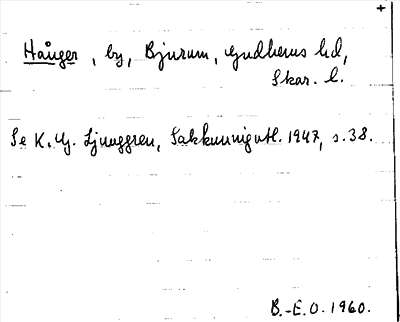 +
Hånger, by, Bjurum, Gudhems hd,
Skar. l.
Se K. G. Ljunggren, Sakkunnigutl. 1947, s. 38.
B.-E.O. 1960.